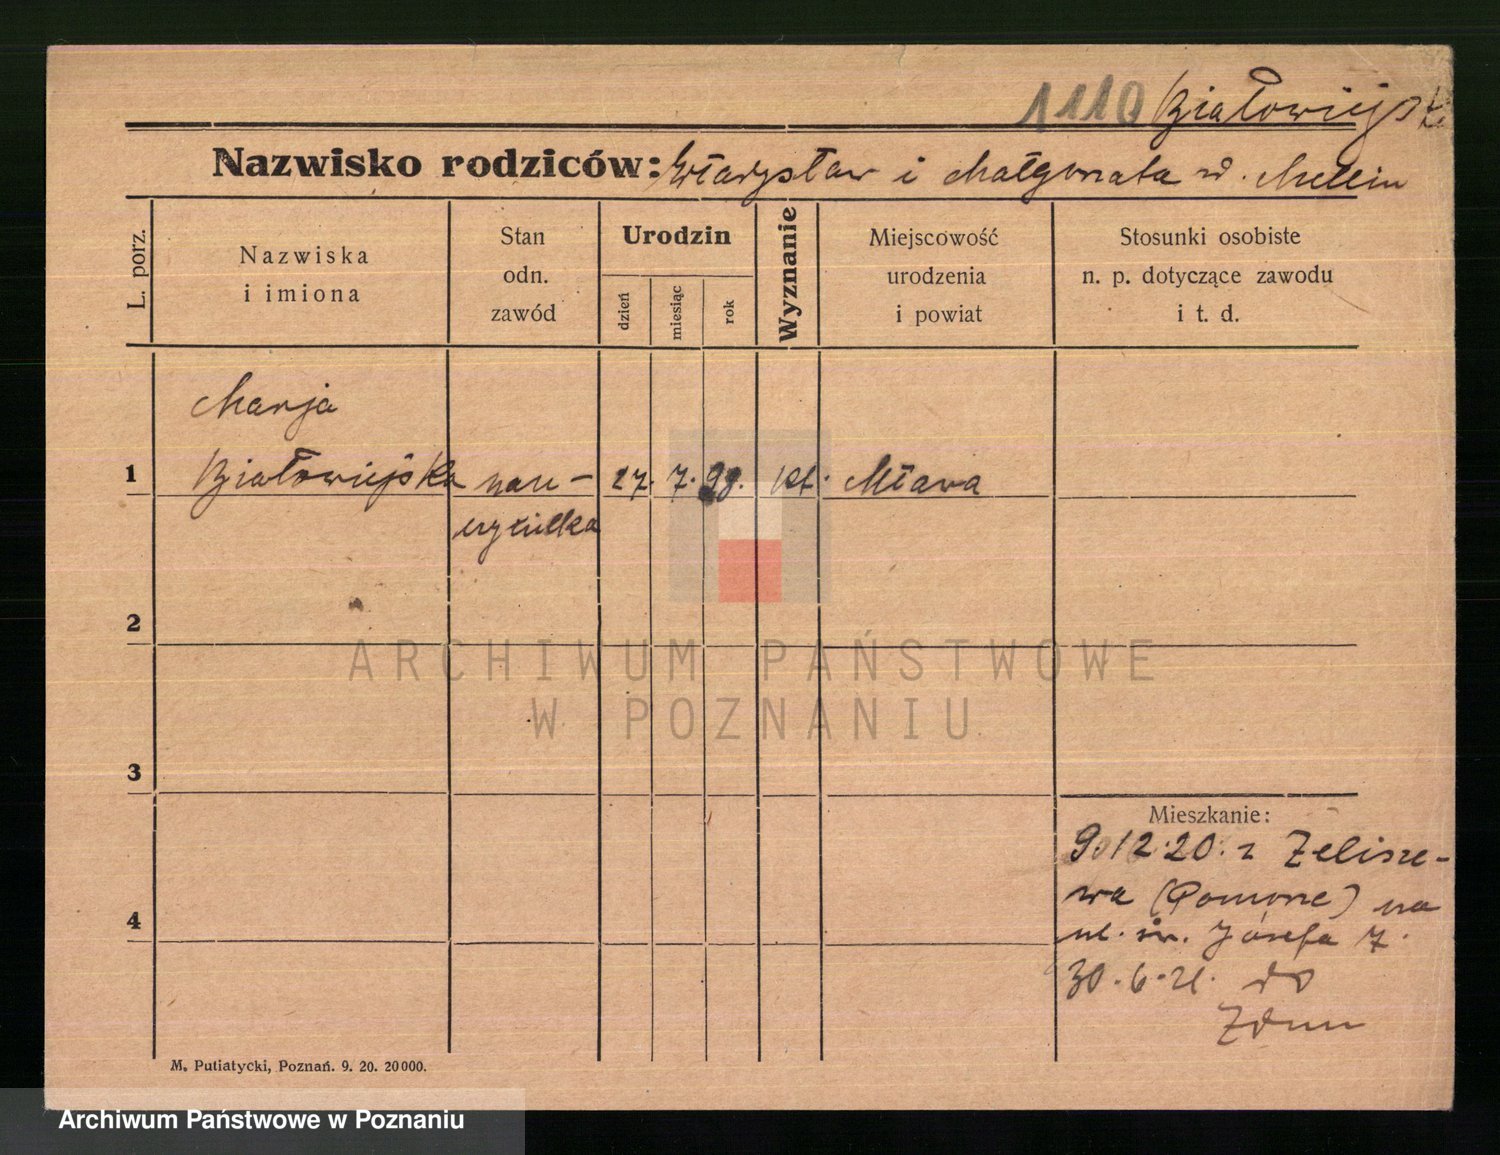 1110 Białowiejska
Nazwisko rodziców: Władysław i Małgorzata
L. porz.
Nazwiska
i imiona
Stan
odn.
zawód
Urodzin
dzień
miesiąc
rok
Wyznanie
Miejscowość
urodzenia
i powiat
Stosunki osobiste
n. p. dotyczące zawodu
i t. d.
Marja
1 Białowiejska nau- 27. 7. 98. kt. Mława
czycielka
2
ARCHIWUM PAŃSTWOWE
W POZNANIU
3
Mieszkanie:
9.12.20. z Zelisze-
wa (Pomorze) na
4
ul. św. Józefa 7.
30.6.21. do
Zdun
M. Putiatycki, Poznań. 9. 20. 20000.
Archiwum Państwowe w Poznaniu